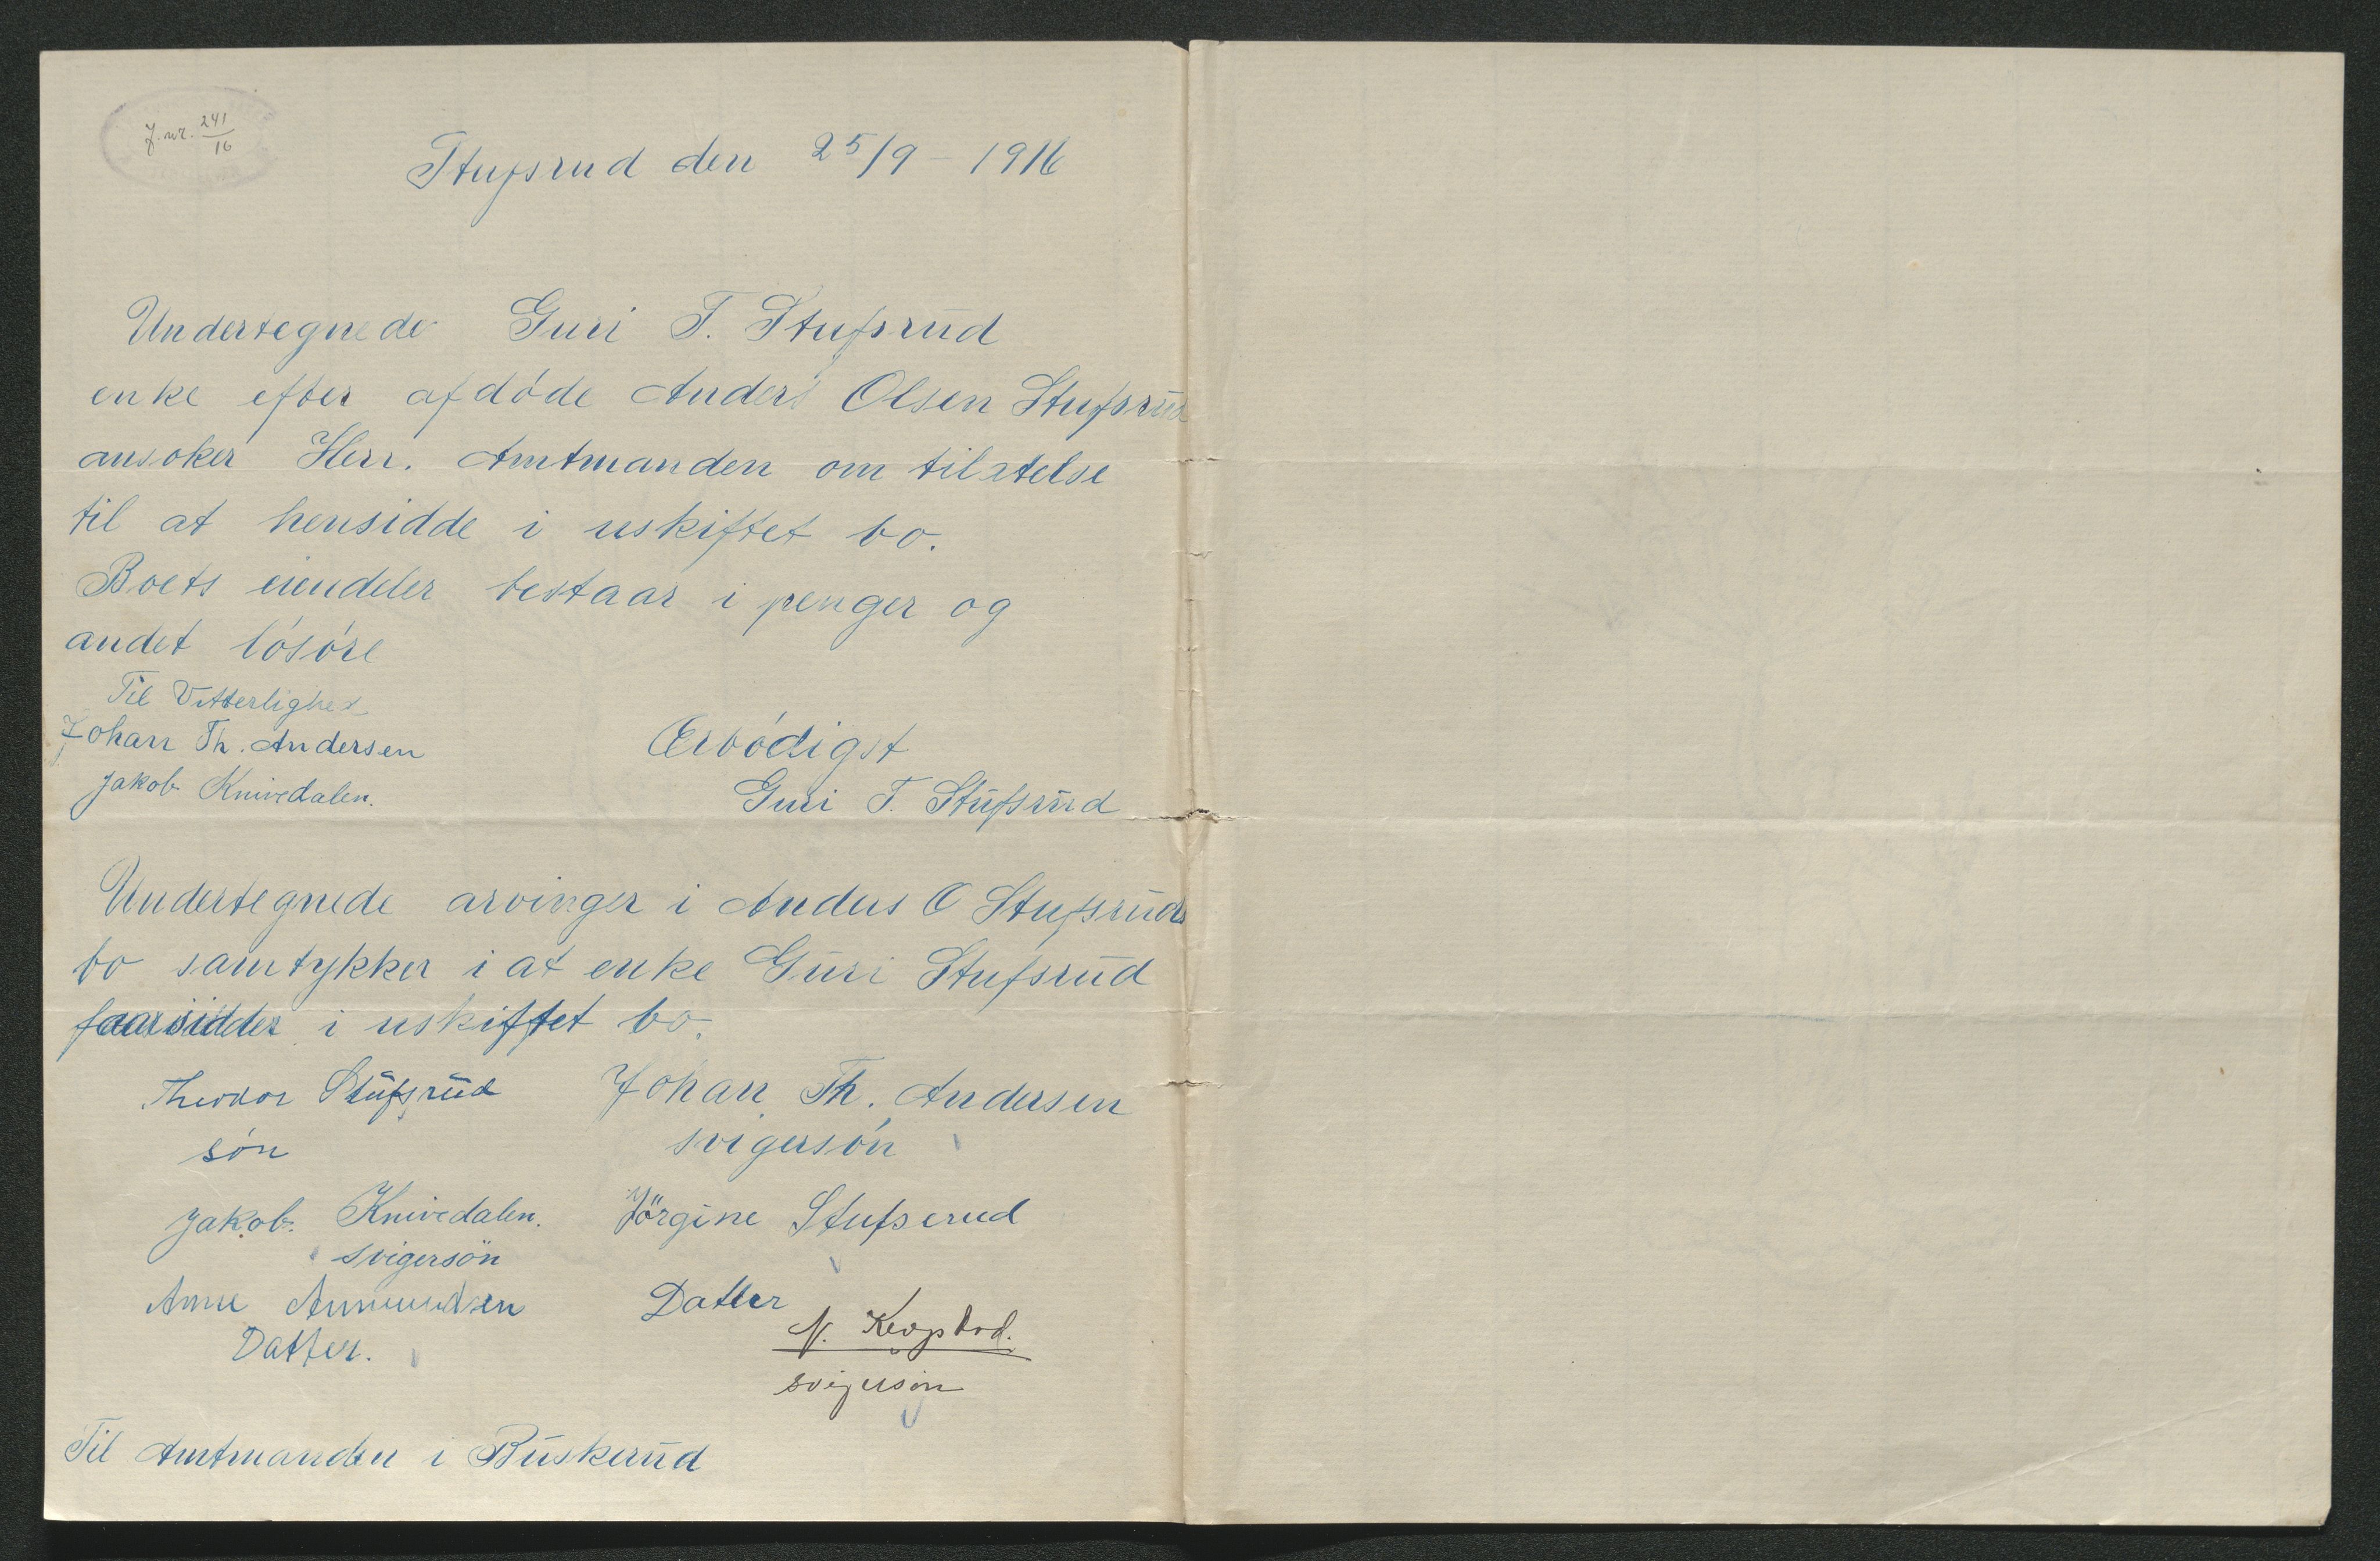 J.nr. 241/16
Stufsrud den 25/9 - 1916
Undertegnede Guri T. Stufsrud
enke efter afdøde Anders Olsen Stufsrud
ansøker Herr. Amtmanden om tilatelse
til at hensidde i uskiftet bo.
Boets eiendeler bestaar i penger og
andet løsøre
Til Vitterlighed
Johan Th. Andersen
Jakob Knivedalen.
Ærbødigst
Guri T. Stufsrud
Undertegnede arvinger i Anders O Stufsruds
bo samtykker i at enke Guri Stufsrud
faar sidder i uskiftet bo.
Theodor Stufsrud Johan Th. Andersen
søn svigersøn
Jakob Knivedalen. Jörgine Stufserud
svigersön
Anne Ammundsen Datter
Datter. N.
svigersøn
Til Amtmanden i Buskerud